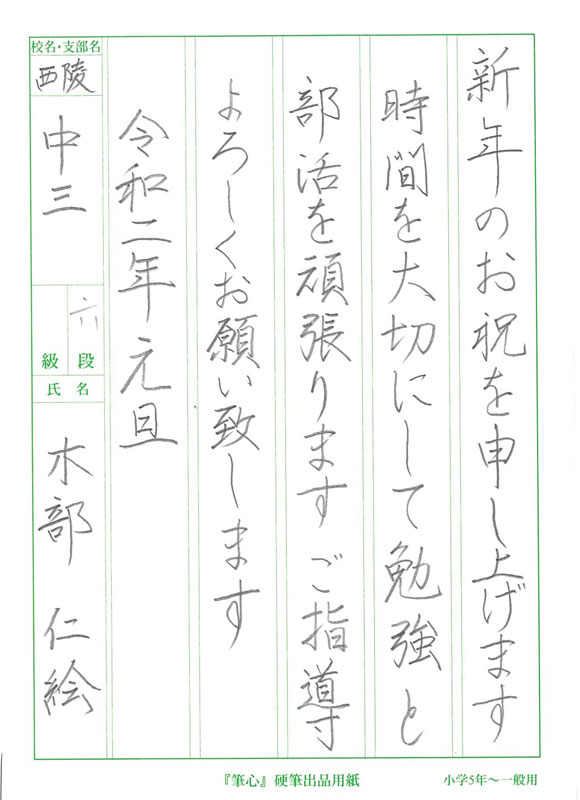 新年のお祝を申し上げます
時間を大切にして勉強と
部活を頑張ります ご指導
よろしくお願い致します
令和二年元旦
校名・支部名
西陵
中三
六
段
級
氏名
木部 仁絵
『筆心』硬筆出品用紙
小学5年～一般用